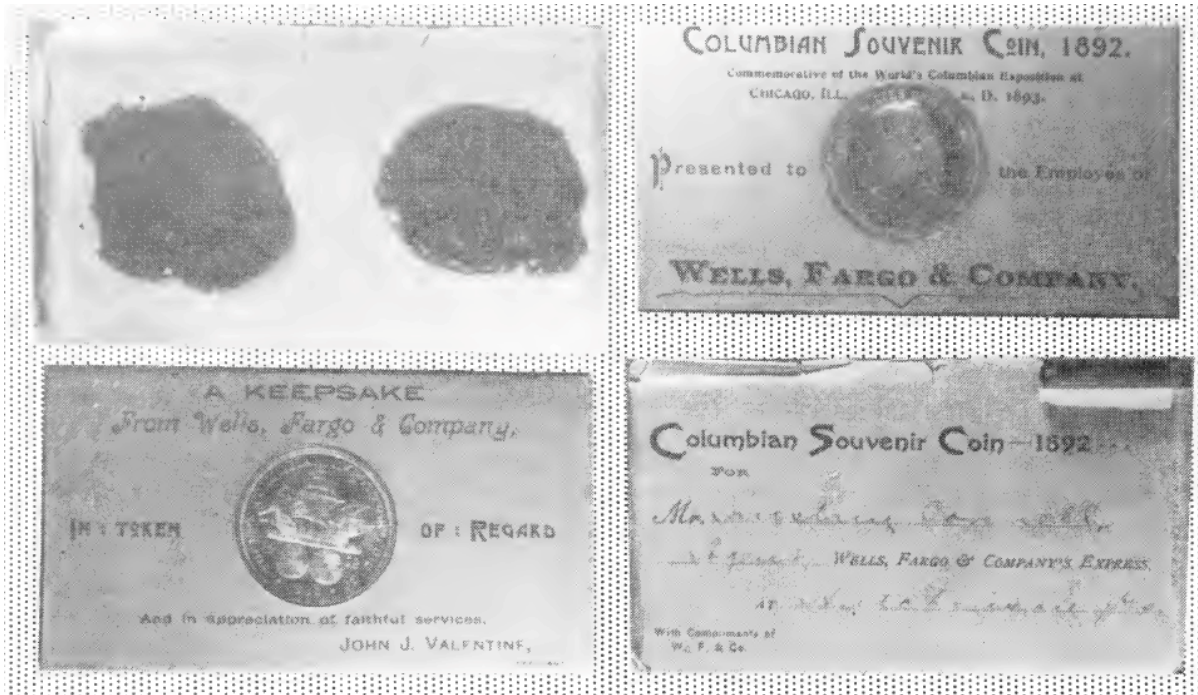 COLUMBIAN SOUVENIR COIN, 1892.
Commemorative of the World's Columbian Exposition at
CHICAGO, ILL. D. 1893.
Presented to the Employes of
WELLS, FARGO & COMPANY.
A KEEPSAKE
From Wells, Fargo & Company,
IN : TOKEN OF : REGARD
And in appreciation of faithful services.
JOHN J. VALENTINE,
Columbian Souvenir Coin—1892
FOR
Mr.
WELLS, FARGO & COMPANY'S EXPRESS,
AT
With Compliments of
W., F. & Co.